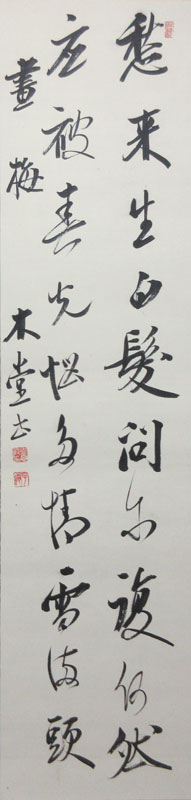 愁来生白髪問尓複何然
应被春光惱多情雪満頭
畫梅
木堂书